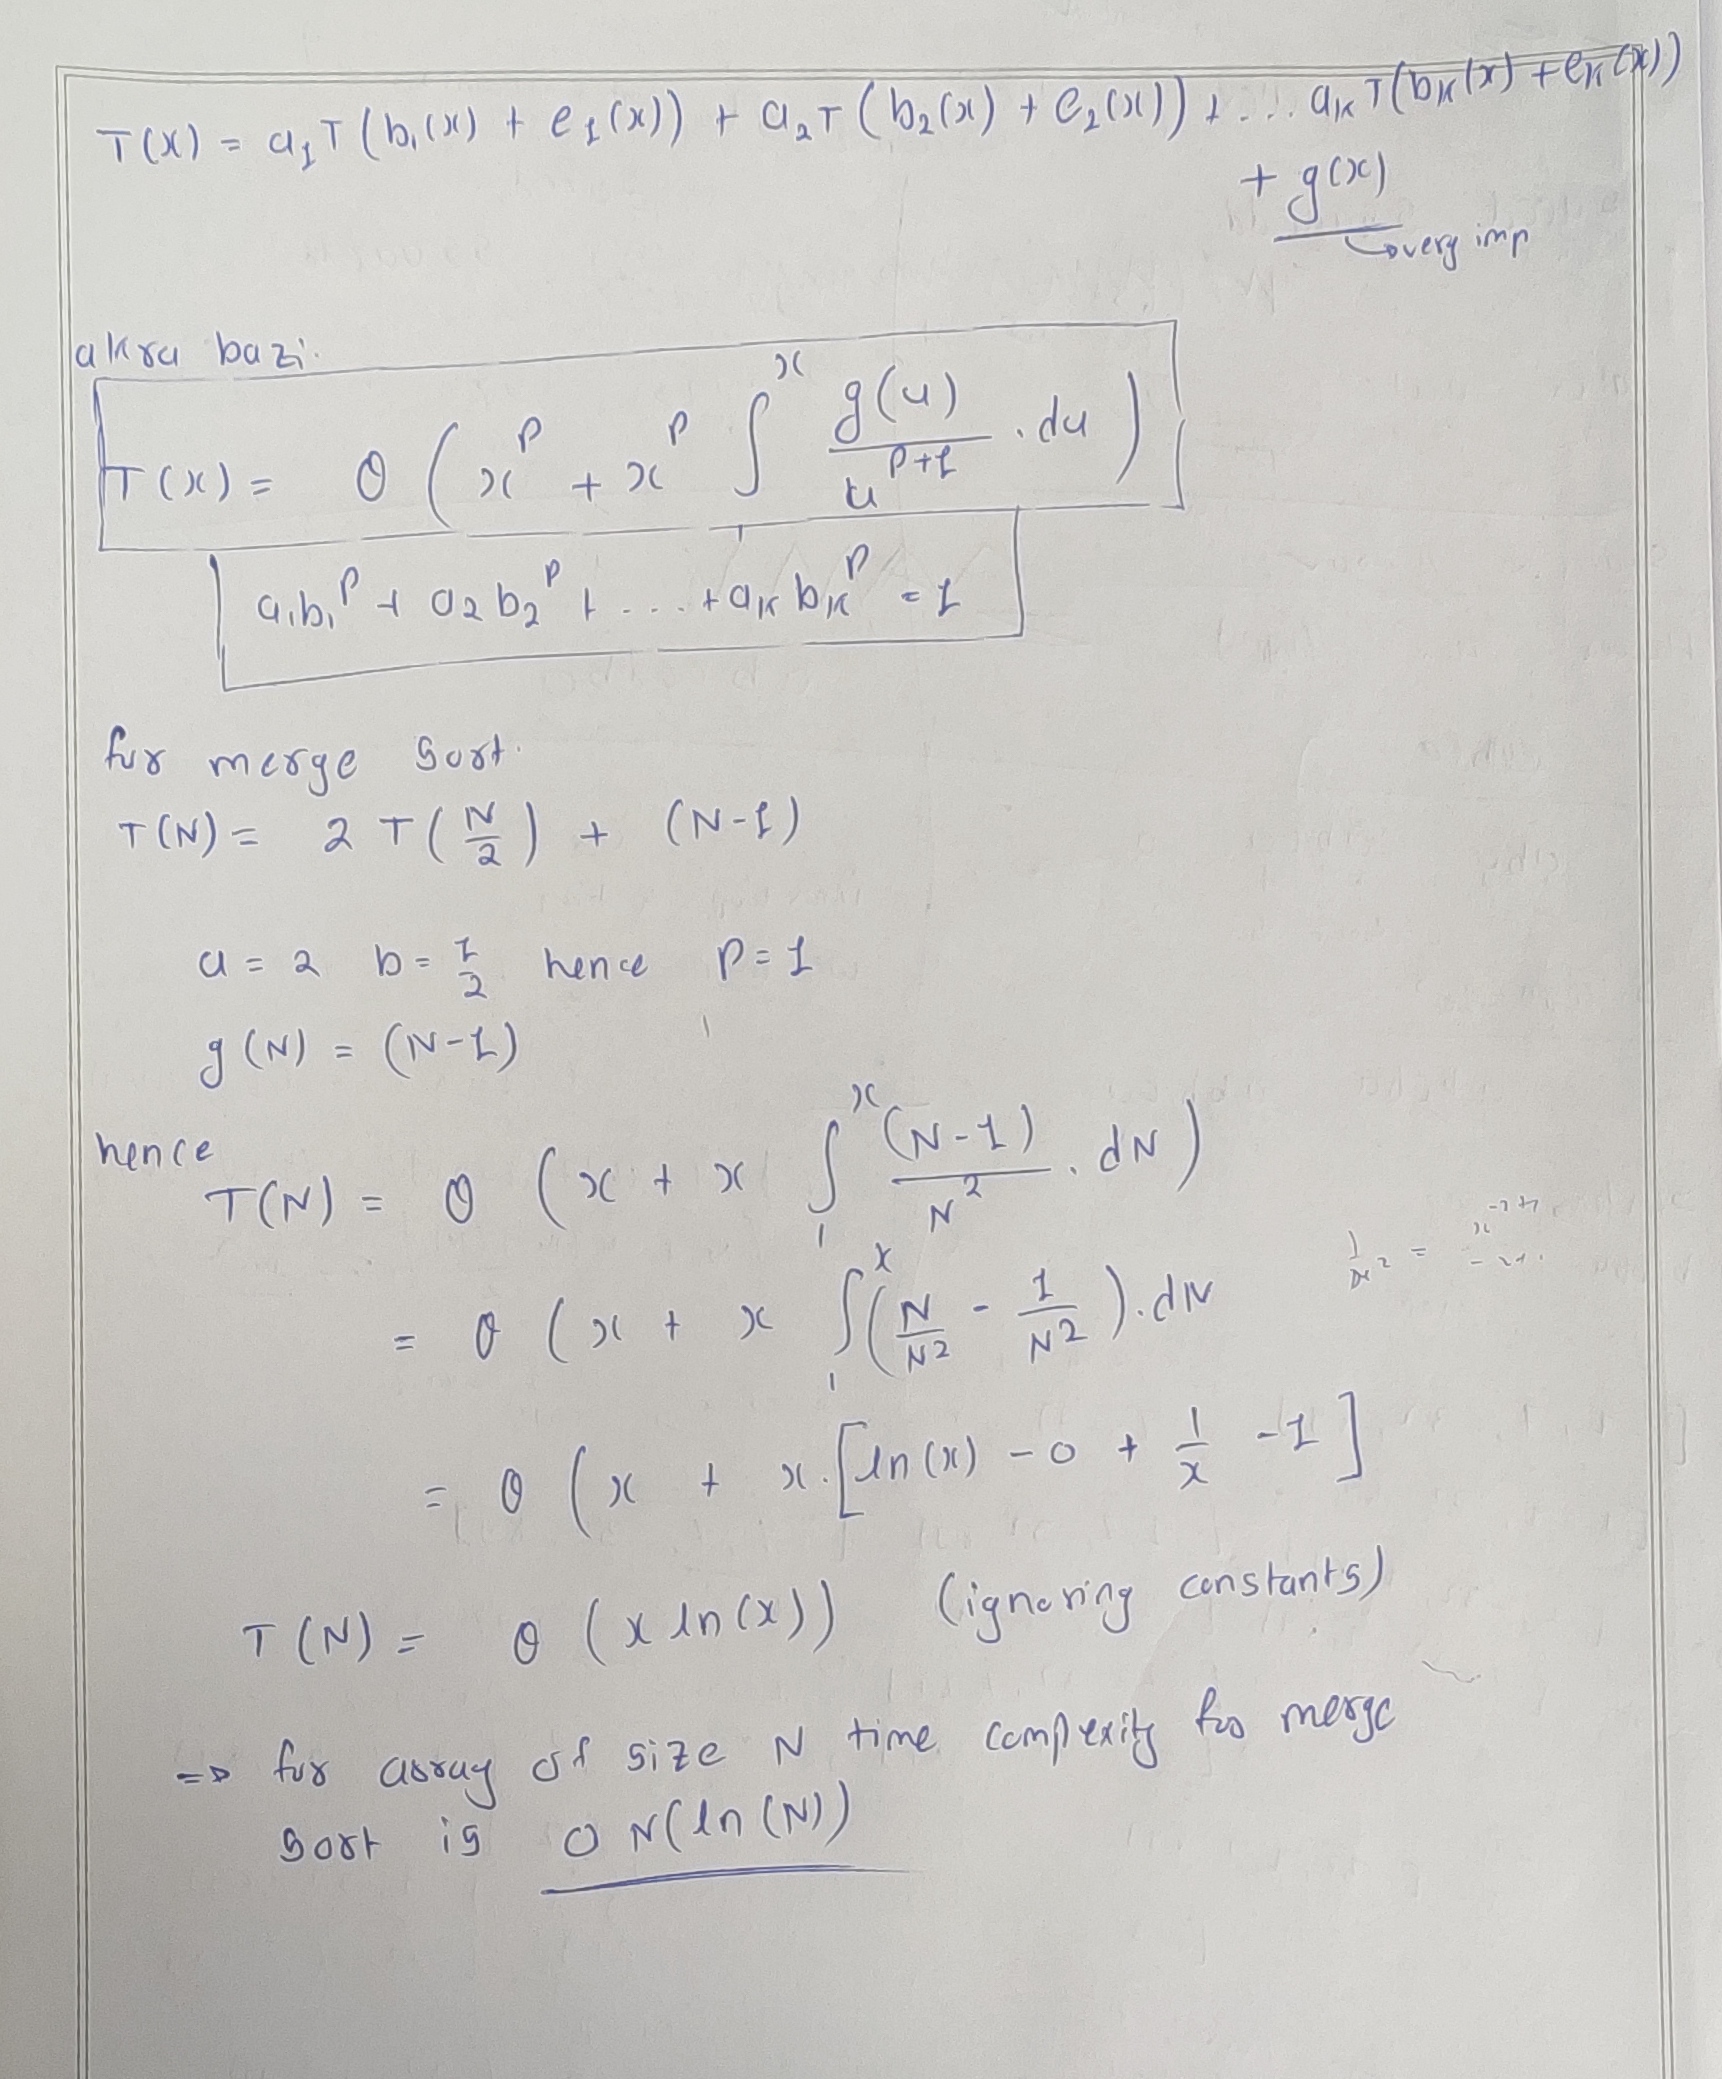 T(x) = a₁T(b₁(x) + e₁(x)) + a₂T(b₂(x) + e₂(x)) + ... aₖT(bₖ(x) + eₖ(x))
+ g(x)
↳ very imp
akra bazi.
T(x) = θ(x^p + x^p ∫^x g(u)/u^(p+1) . du)
a₁b₁^p + a₂b₂^p + ... + aₖbₖ^p = 1
for merge sort.
T(N) = 2T(N/2) + (N-1)
a = 2 b = 1/2 hence p = 1
g(N) = (N-1)
hence
T(N) = θ(x + x ∫₁^x (N-1)/N² . dN)
= θ(x + x ∫₁^x (N/N² - 1/N²).dN
= θ(x + x.[ln(x) - 0 + 1/x - 1]
T(N) = θ(x ln(x)) (ignoring constants)
=> for array of size N time complexity for merge
sort is O N(ln(N))